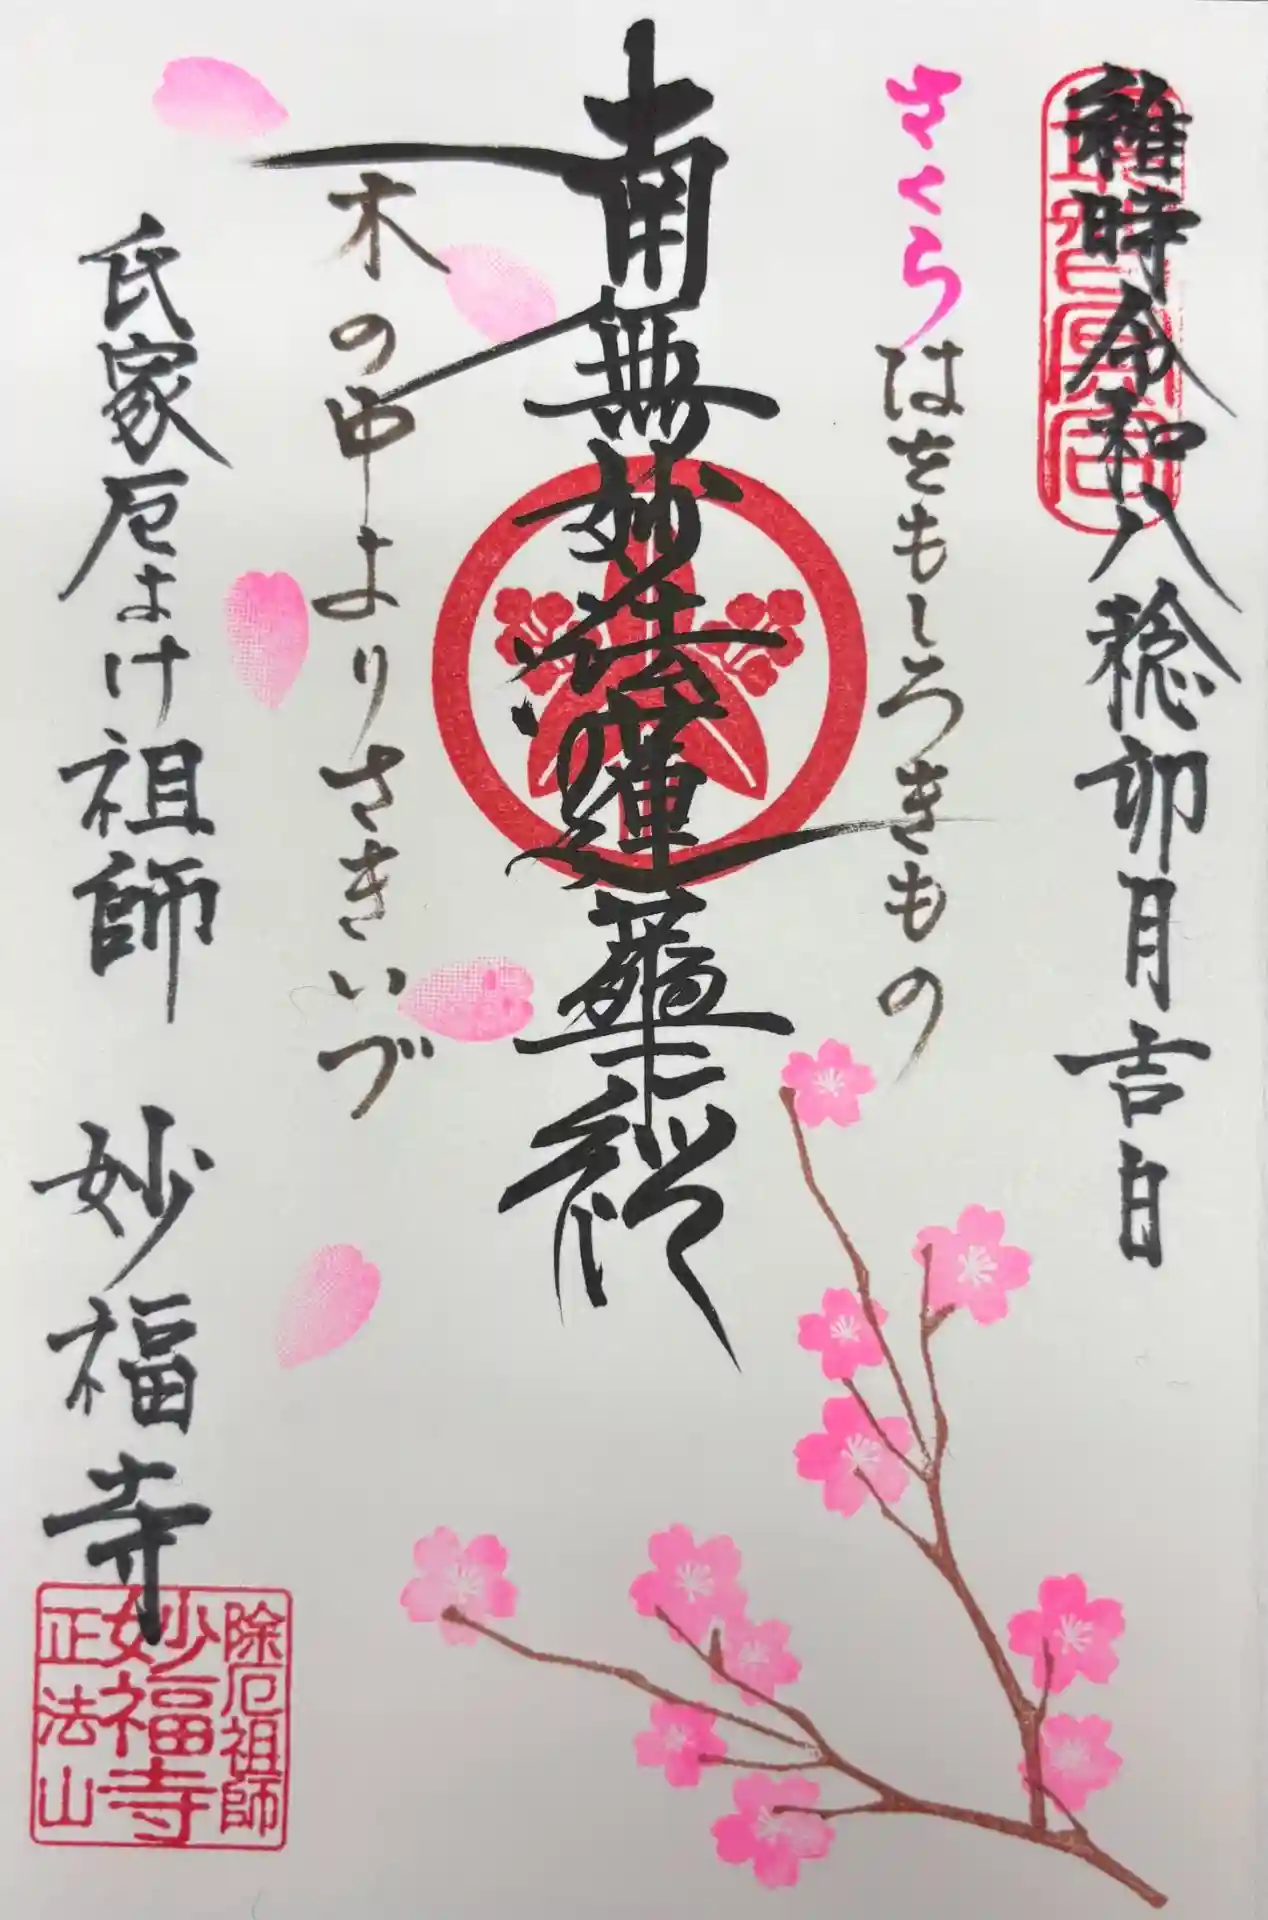 維時令和八稔卯月吉日
さくらはをもしろきもの
南無妙法蓮華経
木の中よりさきいづ
氏家厄よけ祖師 妙福寺
除厄祖師
妙福寺
正法山